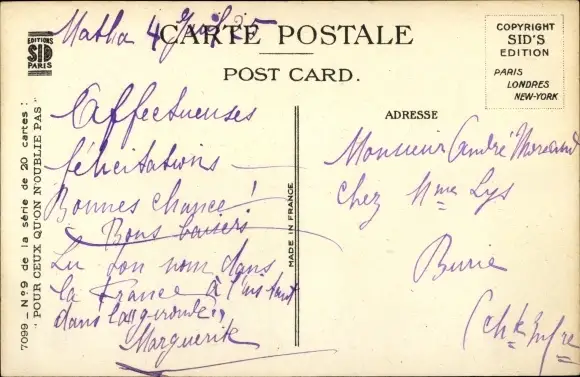 EDITIONS
SID
PARIS
Matha 4 Juil 25
CARTE POSTALE
POST CARD.
COPYRIGHT
SID'S
EDITION
PARIS
LONDRES
NEW-YORK
7099 – N° 9 de la série de 20 cartes :
"POUR CEUX QU'ON N'OUBLIE PAS"
Affectueuses
félicitations
Bonnes chance !
Bons baisers
Lu ton nom dans
la France à l'instant
dans la "gironde"
Marguerite
MADE IN FRANCE
ADRESSE
Monsieur André
chez Mme Lys
Burie
(Chte Infre